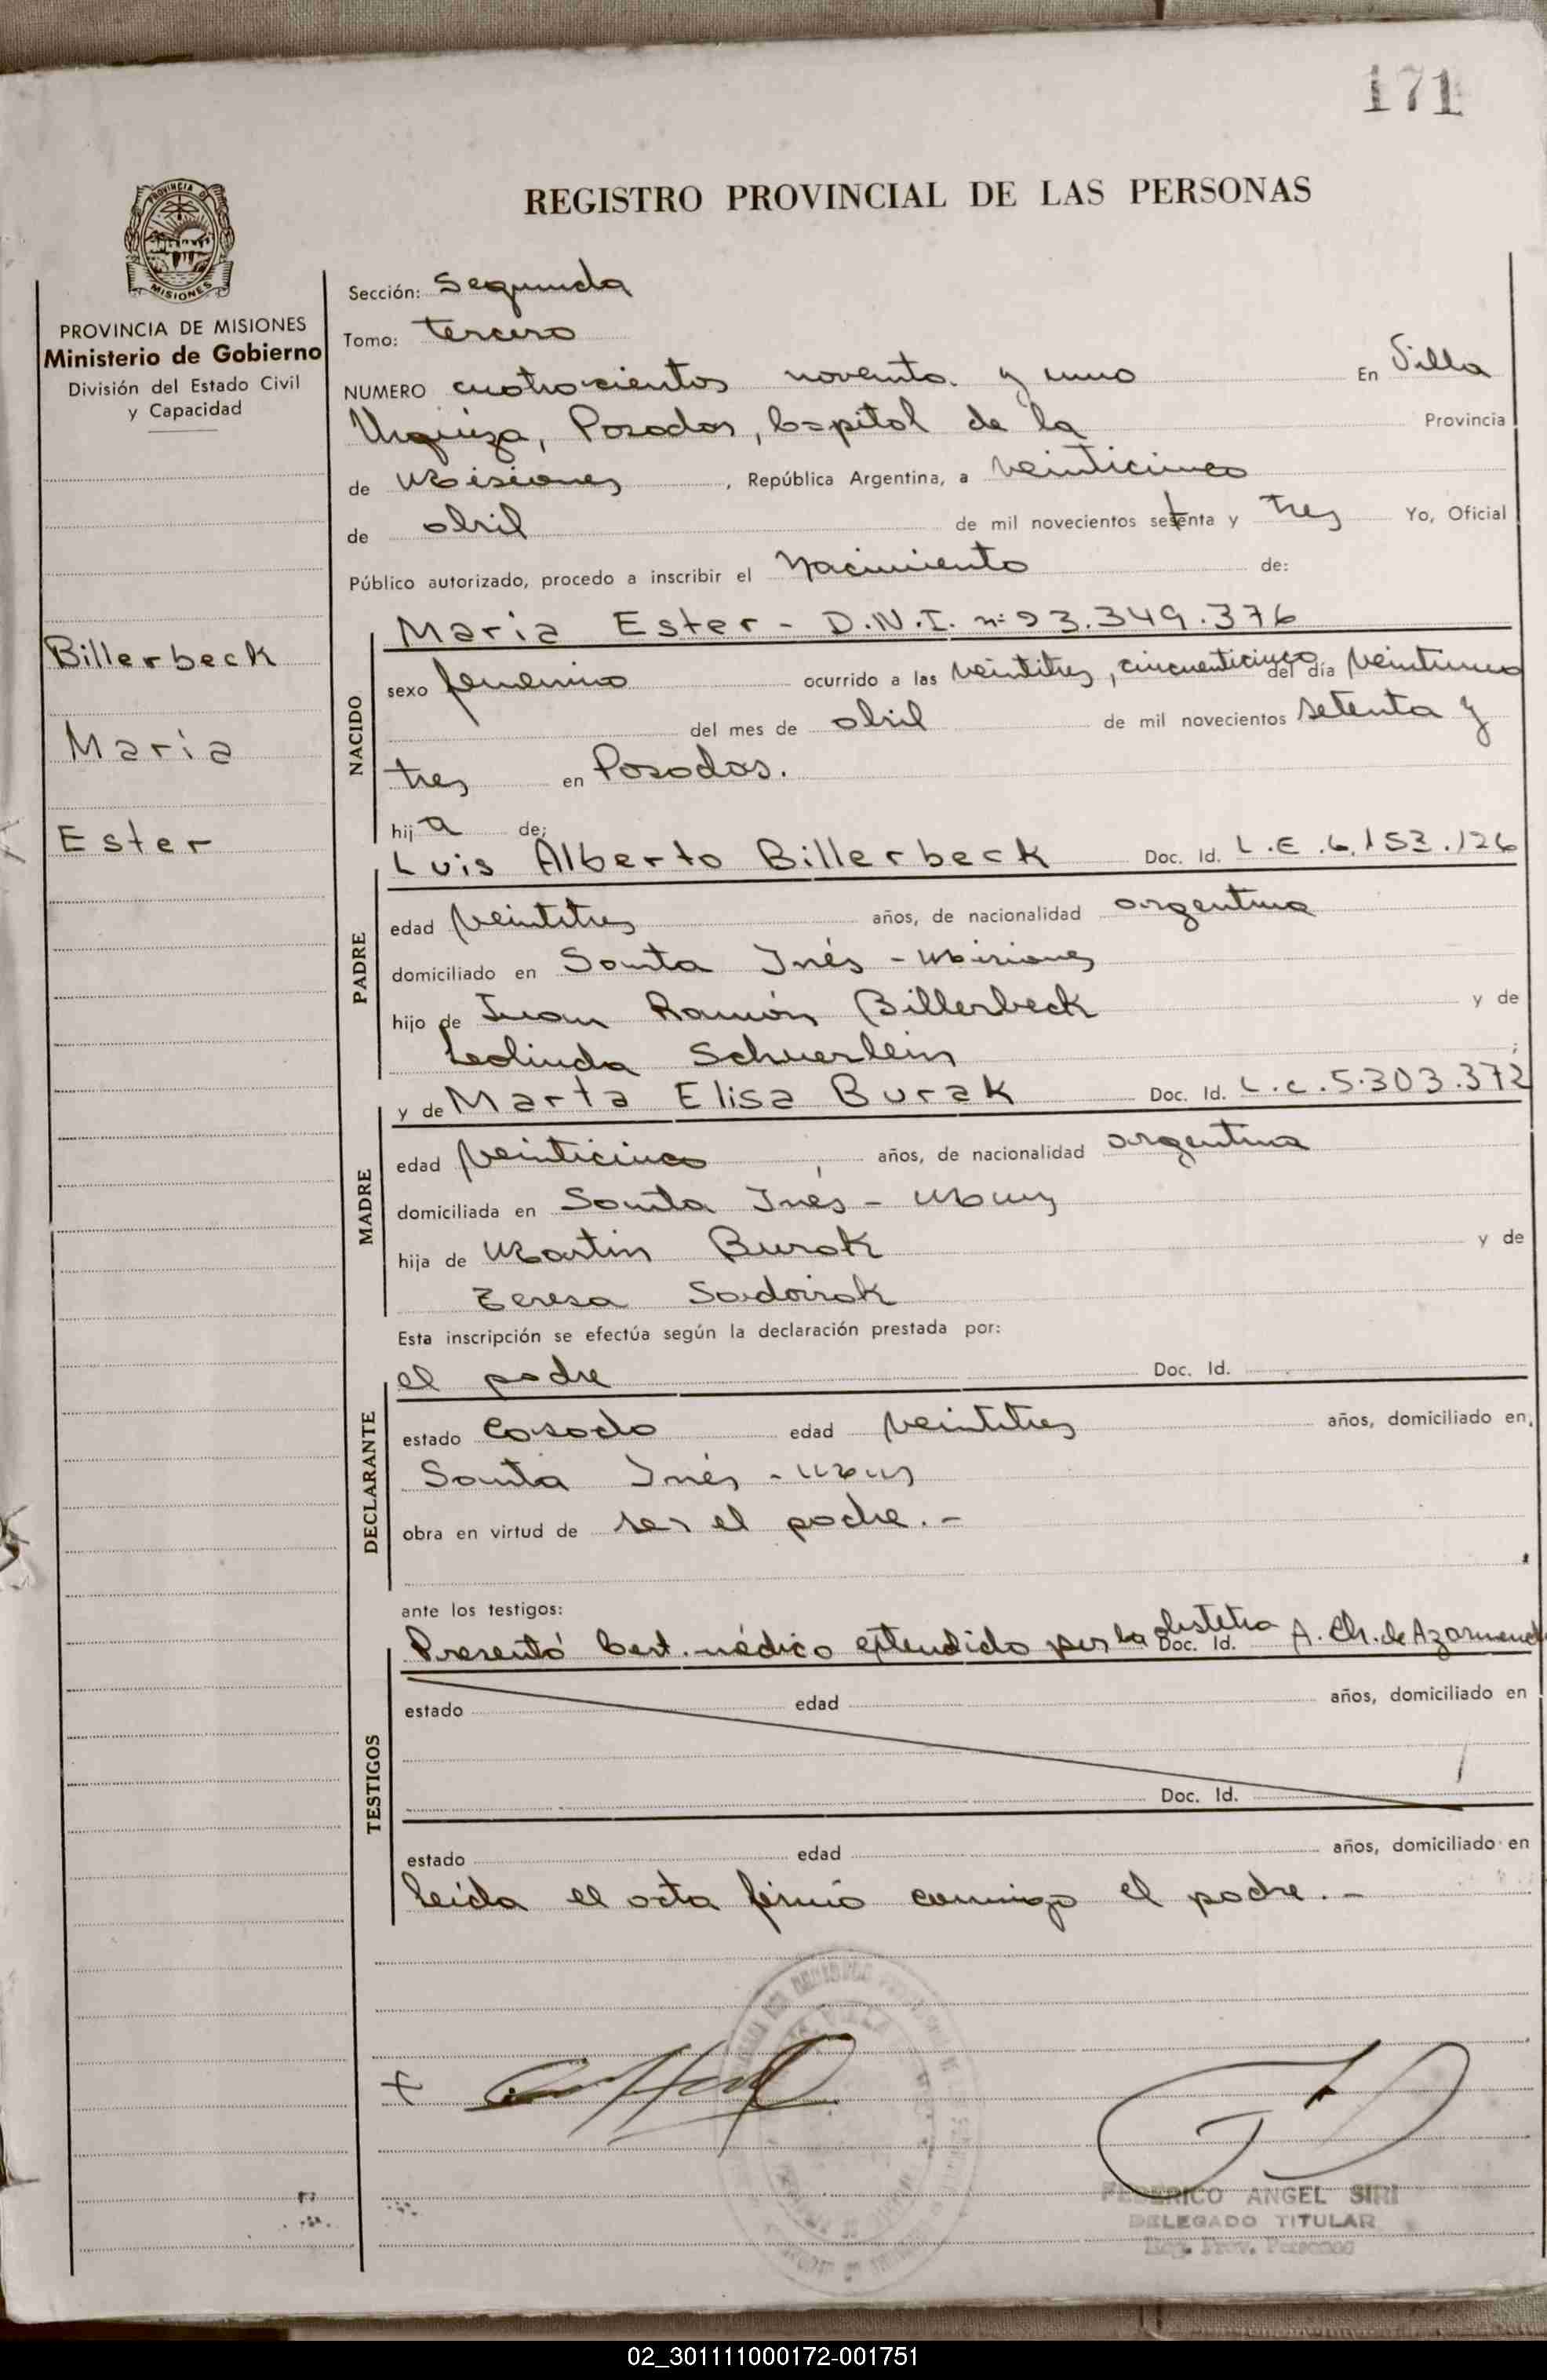 171
REGISTRO PROVINCIAL DE LAS PERSONAS
MISIONES
PROVINCIA DE MISIONES
Ministerio de Gobierno
División del Estado Civil
y Capacidad
Billerbeck
María
Ester
Sección: Segunda
Tomo: tercero
NUMERO cuatrocientos noventa y uno En Villa
Urquiza, Posadas, Capital de la Provincia
de Misiones, República Argentina, a veinticinco
de abril de mil novecientos setenta y tres Yo, Oficial
Público autorizado, procedo a inscribir el Nacimiento de:
NACIDO
María Ester - D.N.I. nº 23.349.376
sexo femenino ocurrido a las veintitres, cincuenticinco del día veintiuno
del mes de abril de mil novecientos setenta y
tres en Posadas.
hija de:
PADRE
Luis Alberto Billerbeck Doc. Id. L.E. 6.153.126
edad veintitres años, de nacionalidad argentina
domiciliado en Santa Inés - Misiones
hijo de Juan Ramón Billerbeck y de
Leolinda Schuerlein;
MADRE
y de Marta Elisa Burak Doc. Id. L.C. 5.303.372
edad veinticinco, años, de nacionalidad argentina
domiciliada en Santa Inés - Mnes
hija de Martin Burak y de
Teresa
Esta inscripción se efectúa según la declaración prestada por:
DECLARANTE
el padre Doc. Id.
estado Casado edad veintitres años, domiciliado en
Santa Inés - Mnes
obra en virtud de ser el padre.-
ante los testigos:
TESTIGOS
Presentó Cert. médico extendido por la obstetra Doc. Id. A. Ch. de
estado edad años, domiciliado en
Doc. Id.
estado edad años, domiciliado en
Leída el acta firmó conmigo el padre.-
FEDERICO ANGEL SIRI
DELEGADO TITULAR
Reg. Prov. Personas
02_301111000172-001751